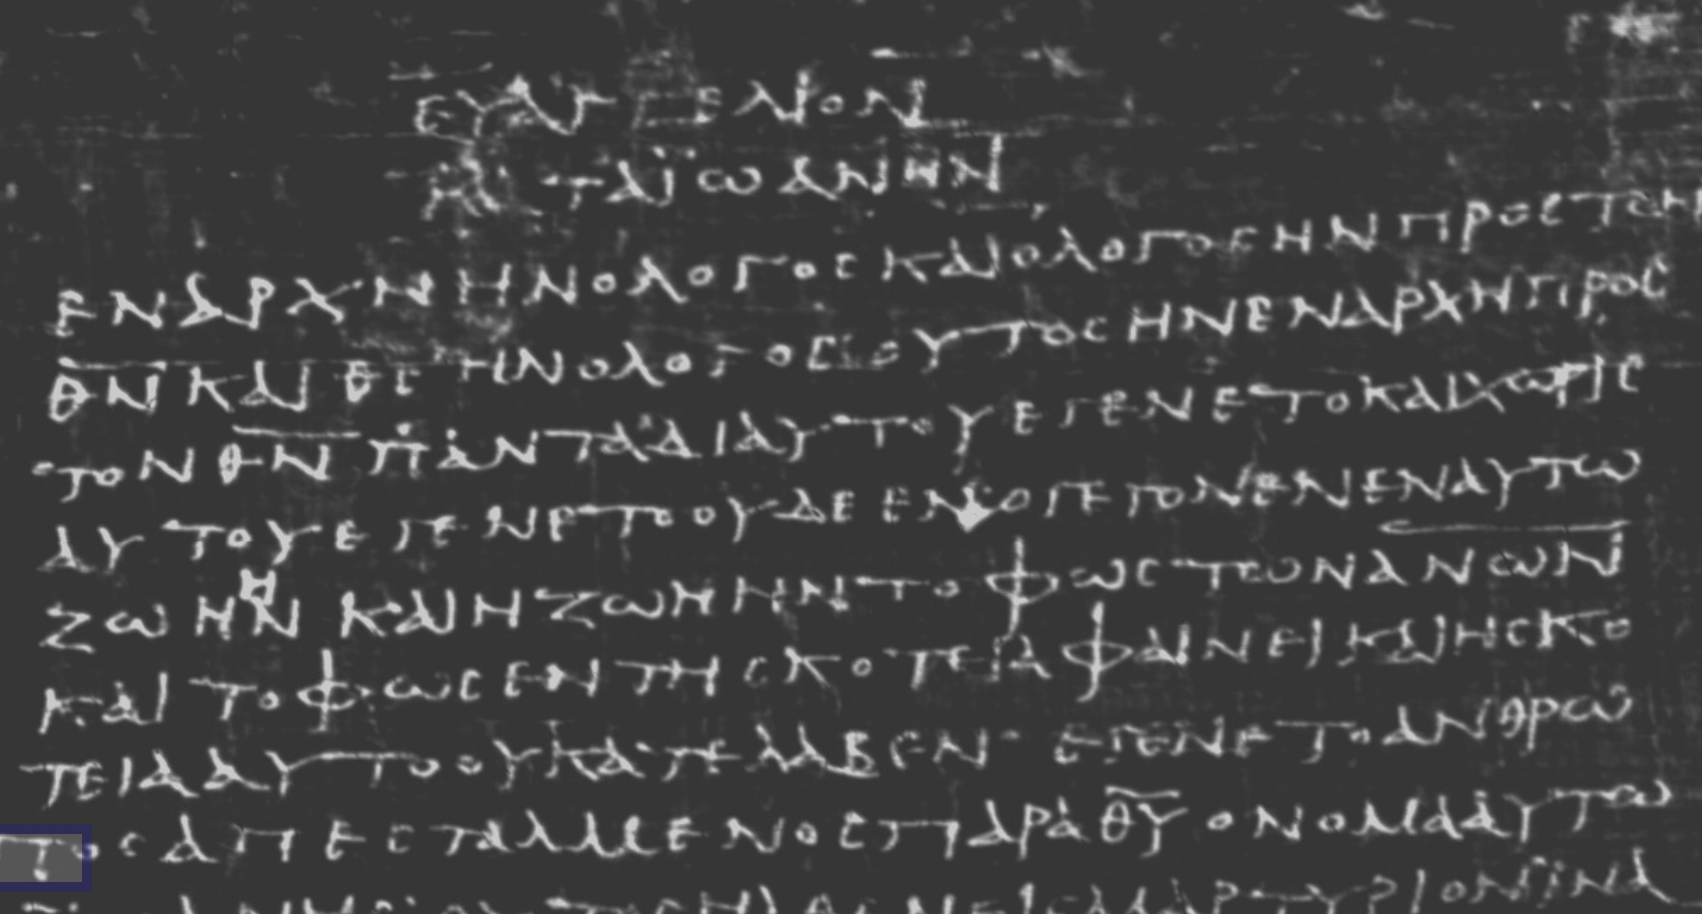 ΕΥΑΓΓΕΛΙΟΝ
ΚΑΤΑΪΩΑΝΗΝ
ΕΝΑΡΧΗΗΝΟΛΟΓΟΣΚΑΙΟΛΟΓΟΣΗΝΠΡΟΣΤΟΝ
Θ̅Ν̅ΚΑΙΘ̅Σ̅ΗΝΟΛΟΓΟΣΟΥΤΟΣΗΝΕΝΑΡΧΗΠΡΟΣ
ΤΟΝΘ̅Ν̅ΠΑΝΤΑΔΙΑΥΤΟΥΕΓΕΝΕΤΟΚΑΙΧΩΡΙΣ
ΑΥΤΟΥΕΓΕΝΕΤΟΟΥΔΕΕΝΟΓΕΓΟΝΕΝΕΝΑΥΤΩ
ΖΩΗΗΝΚΑΙΗΖΩΗΗΝΤΟΦΩΣΤΩΝΑ̅Ν̅Ω̅Ν̅
ΚΑΙΤΟΦΩΣΕΝΤΗΣΚΟΤΕΙΑΦΑΙΝΕΙΚΑΙΗΣΚΟ
ΤΕΙΑΑΥΤΟΟΥΚΑΤΕΛΑΒΕΝ ΕΓΕΝΕΤΟΑΝΘΡΩ
ΠΟΣΑΠΕΣΤΑΛΜΕΝΟΣΠΑΡΑΘ̅Υ̅ΟΝΟΜΑΑΥΤΩ